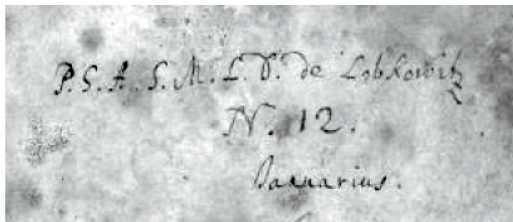 P. S. A. S. M. L. V. de Lobkowitz
N. 12.
Januarius.